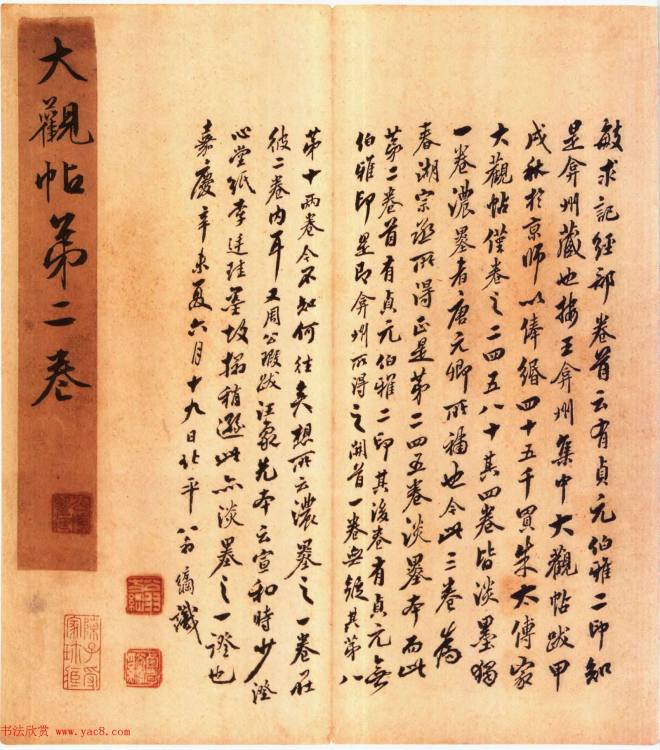 敏求記經部卷首云有貞元伯雅二印知
是弇州藏也按王弇州集中大觀帖跋甲
戌秋於京師以俸緡四十五千買朱太傅家
大觀帖僅卷之二四五八十其四卷皆淡墨獨
一卷濃墨者唐元卿所補也今此三卷為
春湖宗丞所得正是第二四五卷淡墨本而此
第二卷首有貞元伯雅二印其後卷有貞元無
伯雅印是即弇州所得之開首一卷無疑其第八
第十兩卷今不知何往矣想所云濃墨之一卷在
彼二卷內耳又周公瑕跋汪象先本云宣和時少澄
心堂紙李廷珪墨故搨稍遜此亦淡墨之一證也
嘉慶辛未夏六月十九日北平翁方綱識
大觀帖第二卷
书法欣赏 www.yac8.com